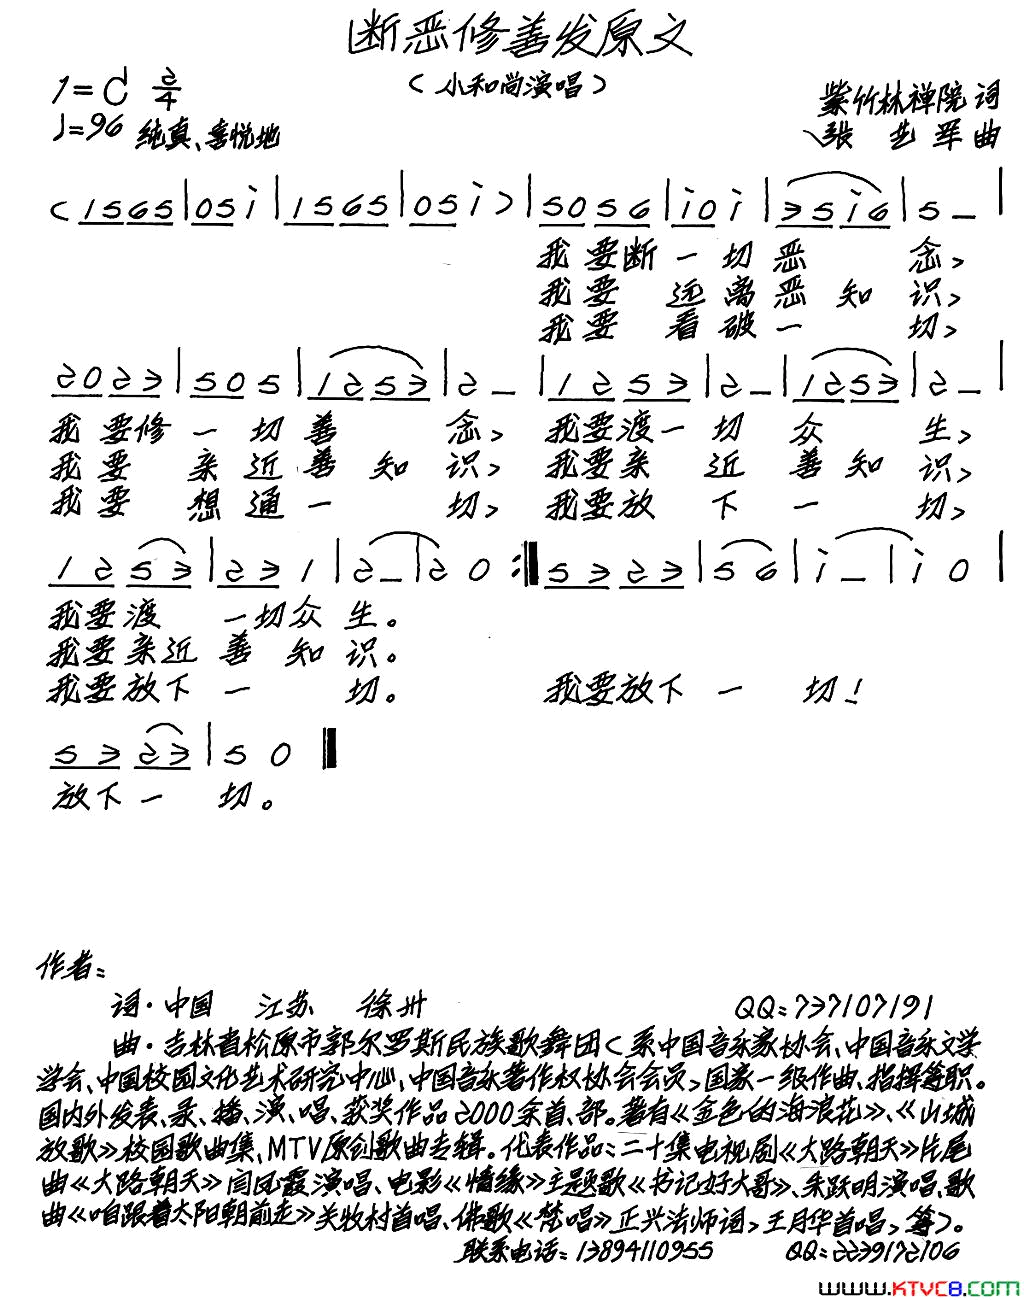 断恶修善发原文
(小和尚演唱)
1=C 2/4
♩=96 纯真、喜悦地
紫竹林禅院 词
张艺军 曲
(1565|05i|1565|05i)|5056|i0i|35i6|5—|
我要断一切恶念,
我要远离恶知识,
我要看破一切,
2023|505|1253|2—|1253|2—|1253|2—|
我要修一切善念, 我要渡一切众生,
我要亲近善知识, 我要亲近善知识,
我要想通一切, 我要放下一切,
1253|231|2—|20:‖5323|56|i—|i0|
我要渡一切众生。
我要亲近善知识。
我要放下一切。 我要放下一切!
5323|50‖
放下一切。
作者:
词·中国 江苏 徐州 QQ:737107191
曲·吉林省松原市郭尔罗斯民族歌舞团(系中国音乐家协会、中国音乐文学
学会、中国校园文化艺术研究中心、中国音乐著作权协会会员,国家一级作曲、指挥等职。
国内外发表、录、播、演、唱、获奖作品2000余首、部。著有《金色的海浪花》、《山城
放歌》校园歌曲集、MTV原创歌曲专辑。代表作品:二十集电视剧《大路朝天》片尾
曲《大路朝天》闫凤霞演唱、电影《情缘》主题歌《书记好大哥》、朱跃明演唱、歌
曲《咱跟着太阳朝前走》关牧村首唱、佛歌《梵唱》正兴法师词,王月华首唱,等)。
联系电话:13894110955 QQ:2239172106
www.KTVC8.com